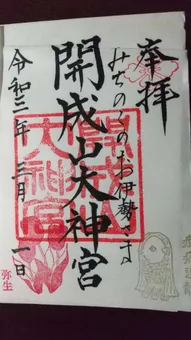 奉拝
みちのくのお伊勢さま
開成山大神宮
令和三年三月一日
弥生